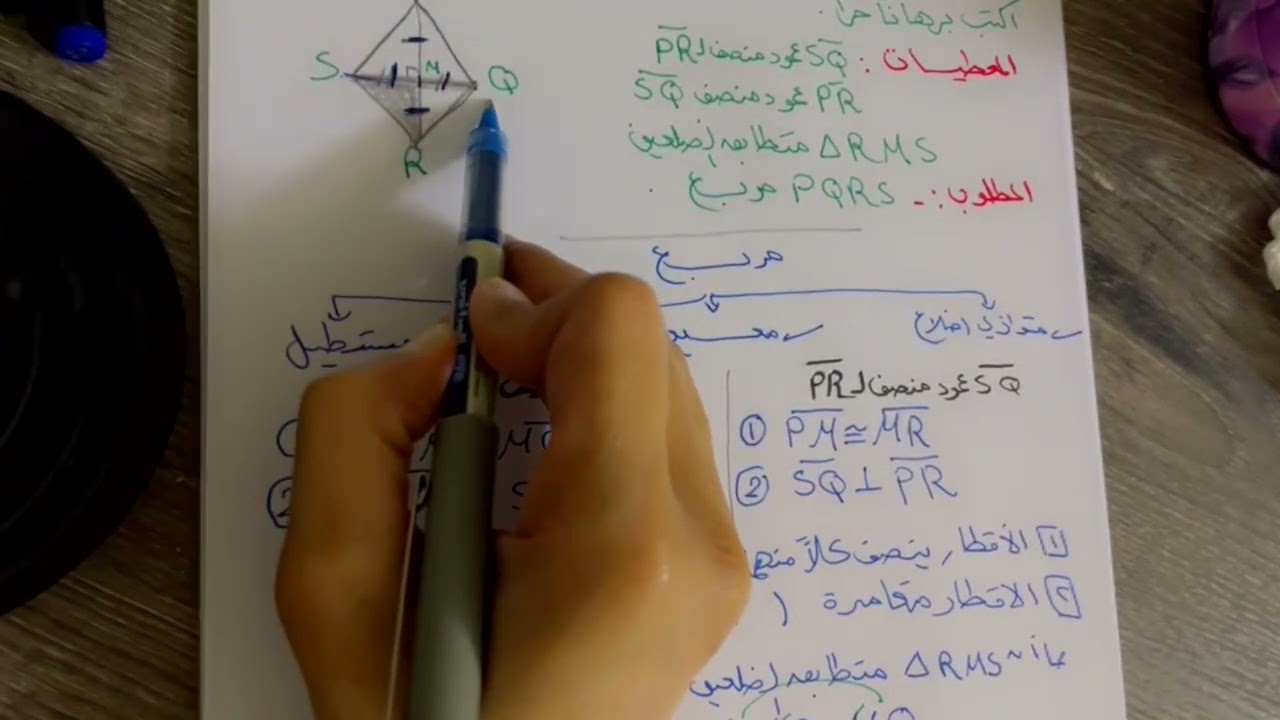 اكتب برهانا حرا.
المعطيات: SQ عمود منصف لـ PR
PR عمود منصف SQ
△RMS متطابق الضلعين
المطلوب:- PQRS مربع.
S
M
Q
R
مربع
متوازي اضلاع
معين
مستطيل
SQ عمود منصف لـ PR
① PM ≅ MR
② SQ ⊥ PR
1 الأقطار ينصف كلاً منهما
٢ الاقطار متعامدة (
بما ان △RMS متطابق الضلعين